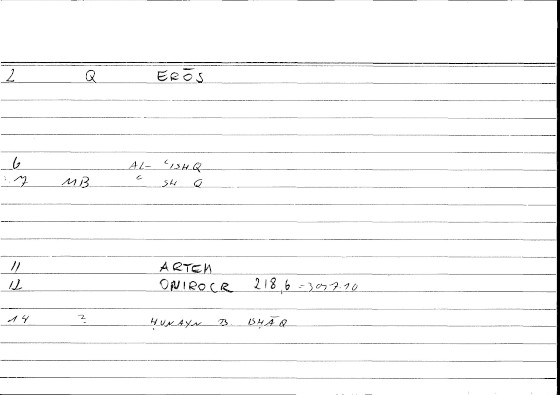 2 Q ERŌS
6 AL- ʿISHQ
7 MB ʿ SH Q
11 ARTEM
12 ONIROCR 218,6 =397.10
14 2 ḤUNAYN B ISḤĀQ